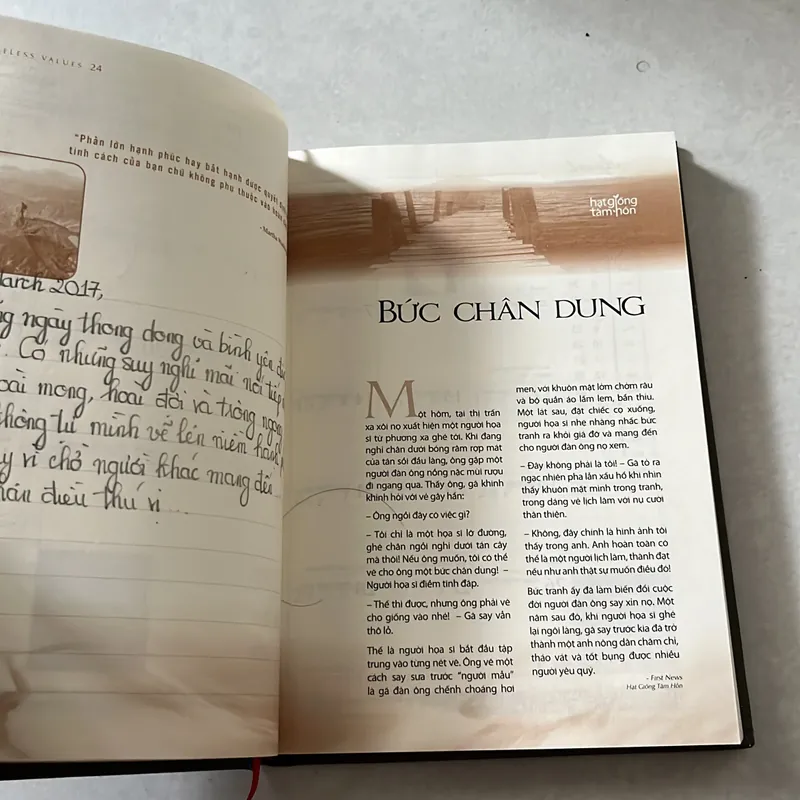 ELESS VALUES 24
"Phần lớn hạnh phúc hay bất hạnh được quyết
tính cách của bạn chứ không phụ thuộc vào
- Martha
March 2017,
ngày thong dong và bình yên
. Có những suy nghĩ mãi nối tiếp
oài mong, hoài đợi và trông ngóng
không tự mình vẽ lên niềm
y vì chờ người khác mang đến
điều thú vị ...
hạt giống
tâm hồn
BỨC CHÂN DUNG
Một hôm, tại thị trấn
xa xôi nọ xuất hiện một người họa
sĩ từ phương xa ghé tới. Khi đang
nghỉ chân dưới bóng râm rợp mát
của tán sồi đầu làng, ông gặp một
người đàn ông nồng nặc mùi rượu
đi ngang qua. Thấy ông, gã khinh
khỉnh hỏi với vẻ gây hấn:
– Ông ngồi đây có việc gì?
– Tôi chỉ là một họa sĩ lỡ đường,
ghé chân ngồi nghỉ dưới tán cây
mà thôi! Nếu ông muốn, tôi có thể
vẽ cho ông một bức chân dung! –
Người họa sĩ điềm tĩnh đáp.
– Thế thì được, nhưng ông phải vẽ
cho giống vào nhé! – Gã say vẫn
thô lỗ.
Thế là người họa sĩ bắt đầu tập
trung vào từng nét vẽ. Ông vẽ một
cách say sưa trước "người mẫu"
là gã đàn ông chếnh choáng hơi
men, với khuôn mặt lởm chởm râu
và bộ quần áo lấm lem, bẩn thỉu.
Một lát sau, đặt chiếc cọ xuống,
người họa sĩ nhẹ nhàng nhấc bức
tranh ra khỏi giá đỡ và mang đến
cho người đàn ông nọ xem.
– Đây không phải là tôi! – Gã tỏ ra
ngạc nhiên pha lẫn xấu hổ khi nhìn
thấy khuôn mặt mình trong tranh,
trong dáng vẻ lịch lãm với nụ cười
thân thiện.
– Không, đây chính là hình ảnh tôi
thấy trong anh. Anh hoàn toàn có
thể là một người lịch lãm, thành đạt
nếu như anh thật sự muốn điều đó!
Bức tranh ấy đã làm biến đổi cuộc
đời người đàn ông say xỉn nọ. Một
năm sau đó, khi người họa sĩ ghé
lại ngôi làng, gã say trước kia đã trở
thành một anh nông dân chăm chỉ,
tháo vát và tốt bụng được nhiều
người yêu quý.
- First News
Hạt Giống Tâm Hồn